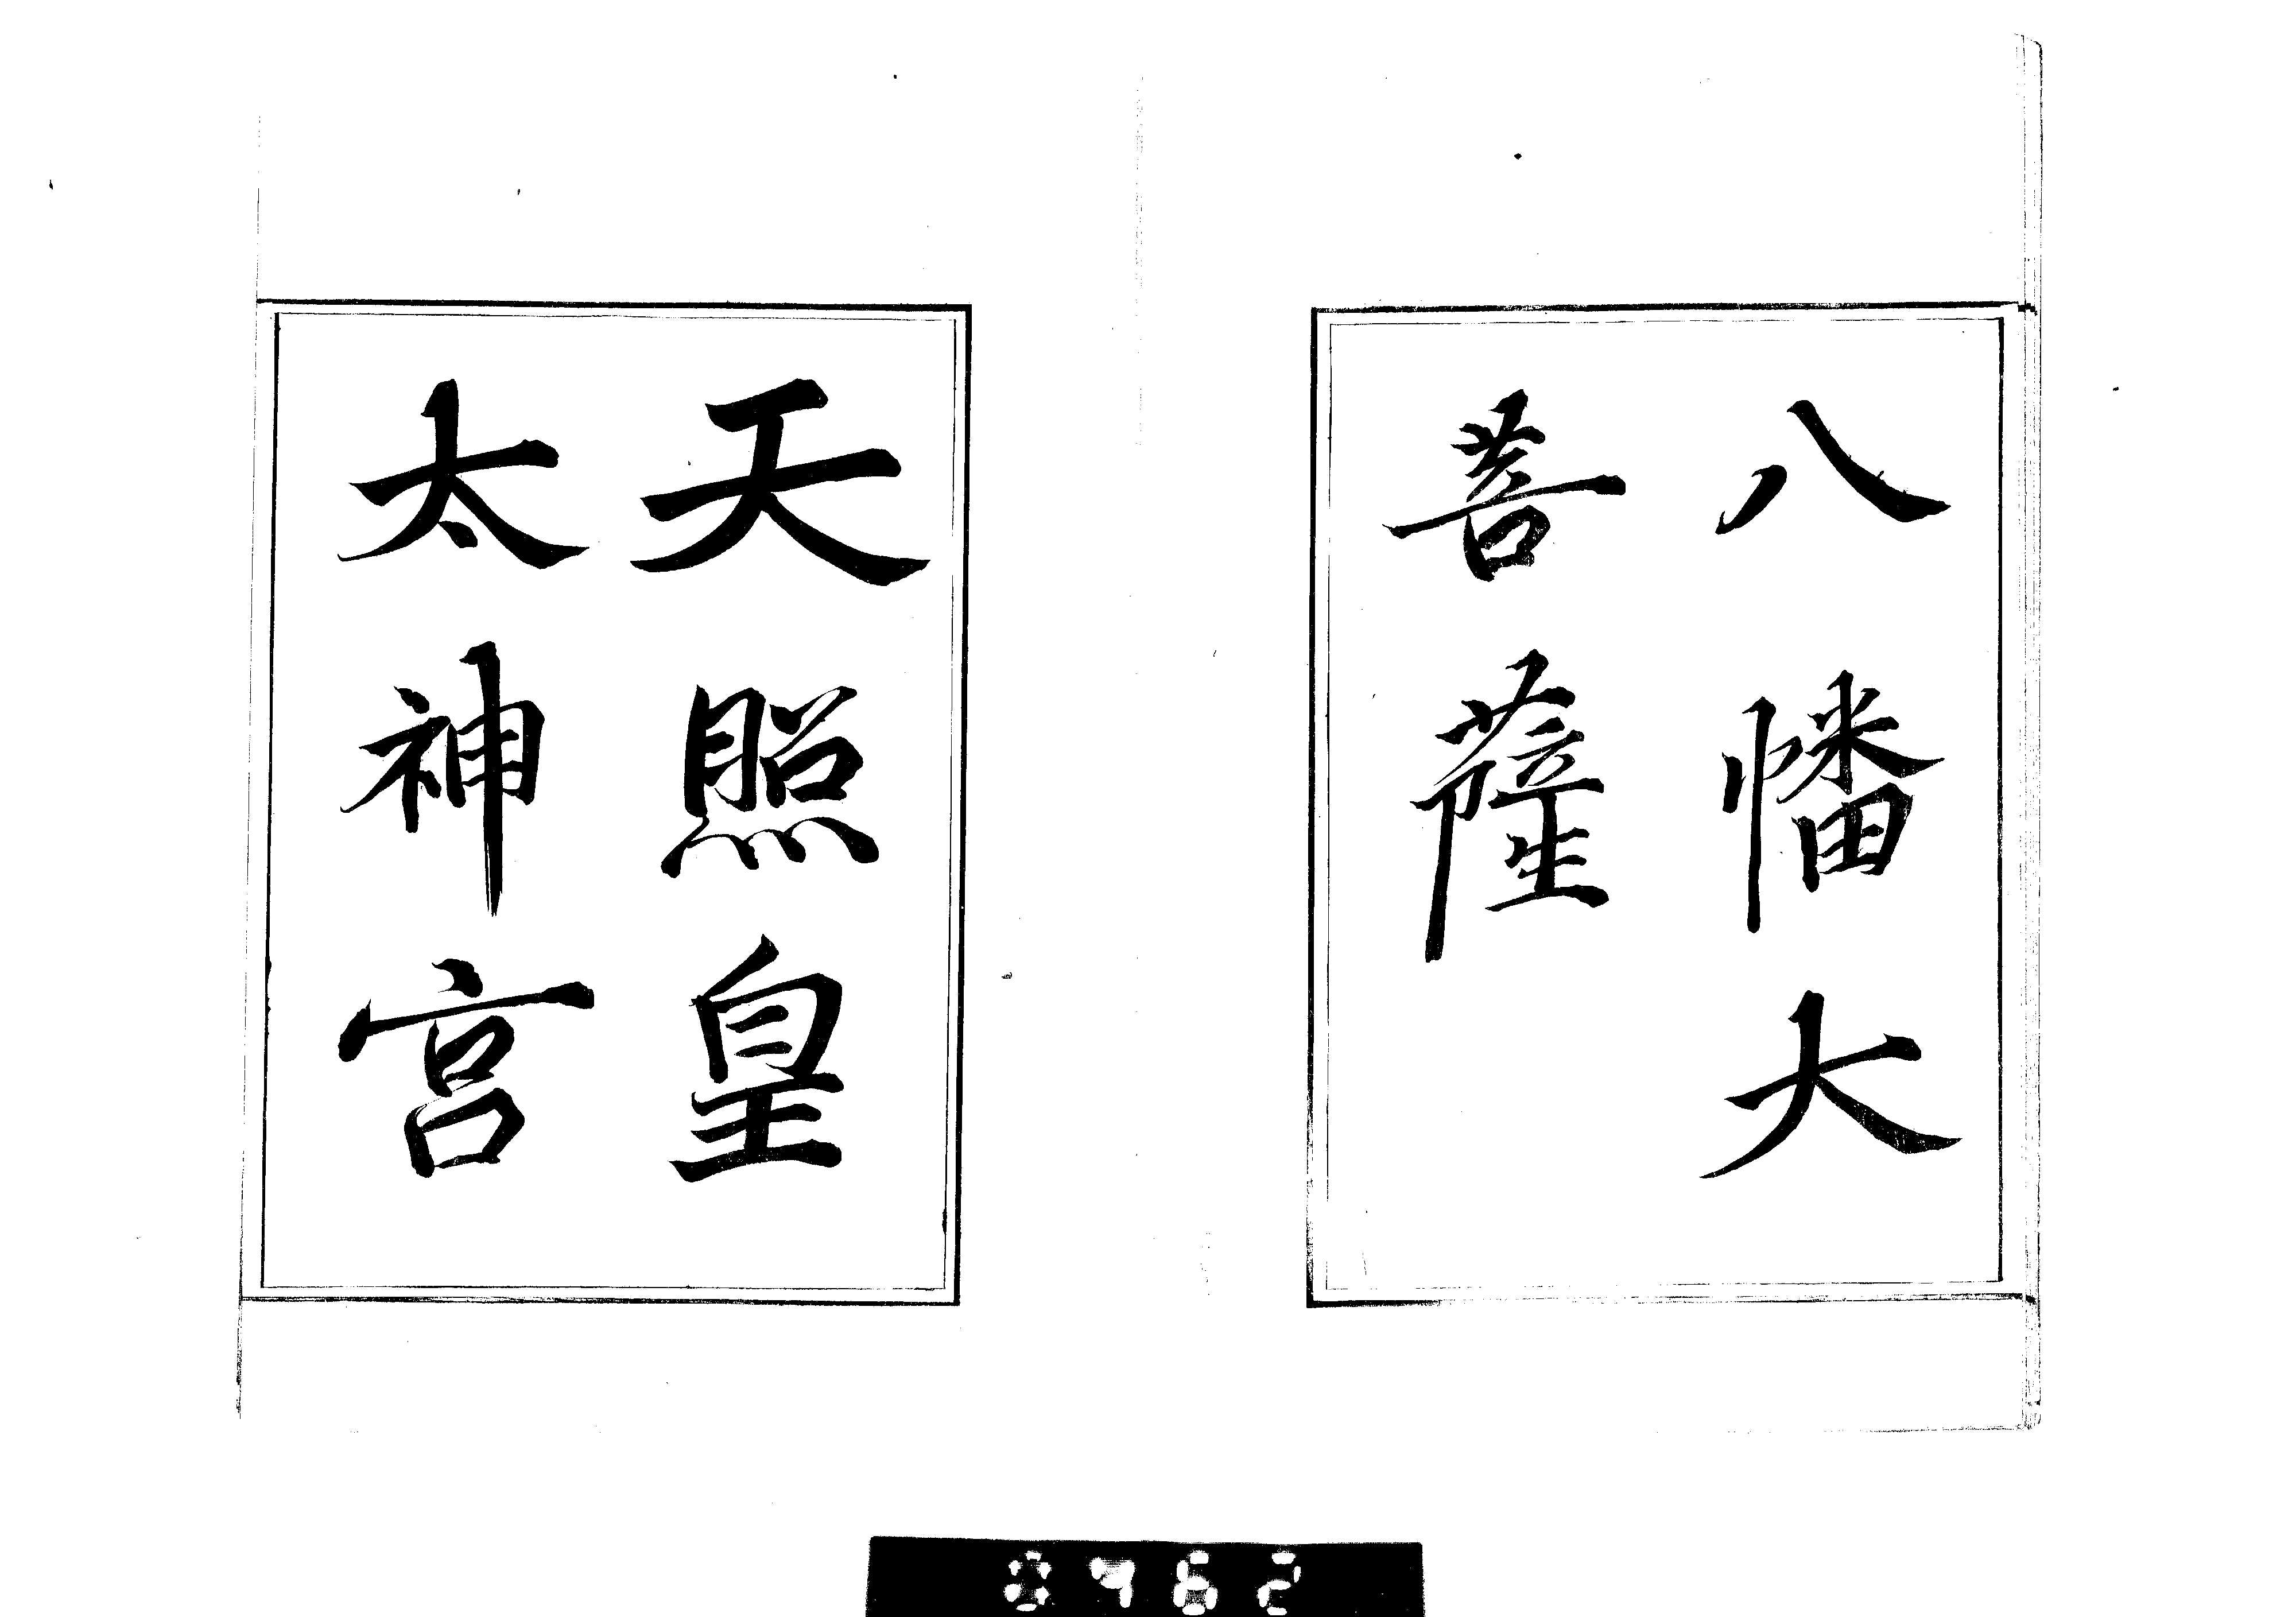 八幡大
菩薩
天照皇
太神宮
0762